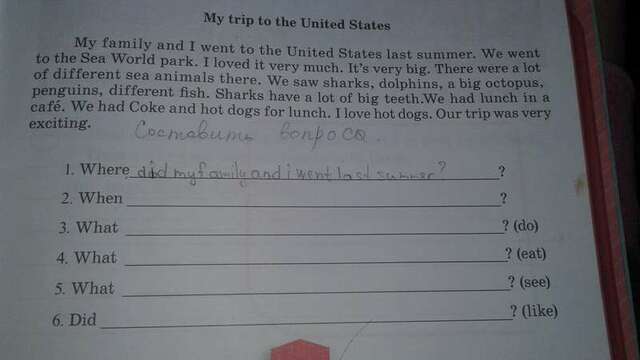 My trip to the United States
My family and I went to the United States last summer. We went
to the Sea World park. I loved it very much. It's very big. There were a lot
of different sea animals there. We saw sharks, dolphins, a big octopus,
penguins, different fish. Sharks have a lot of big teeth. We had lunch in a
café. We had Coke and hot dogs for lunch. I love hot dogs. Our trip was very
exciting.
Составить вопроса.
1. Where did my family and i went last summer? ?
2. When ?
3. What ? (do)
4. What ? (eat)
5. What ? (see)
6. Did ? (like)